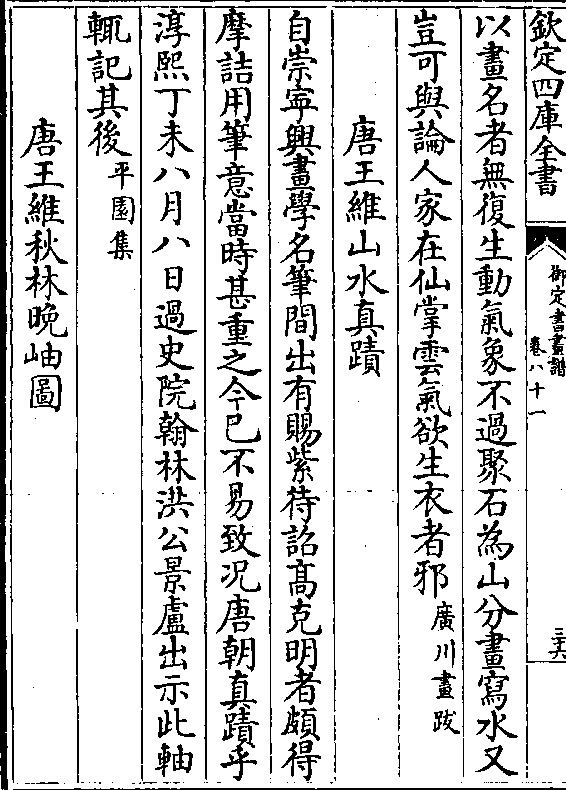 欽定四庫全書
御定書畫譜
卷八十一
三六
以畫名者無復生動氣象不過聚石為山分畫寫水又
豈可與論人家在仙掌雲氣欲生衣者邪廣川畫跋
唐王維山水真蹟
自崇寧興畫學名筆間出有賜紫待詔髙克明者頗得
摩詰用筆意當時甚重之今已不易致况唐朝真蹟乎
淳熙丁未八月八日過史院翰林洪公景盧出示此軸
輒記其後平園集
唐王維秋林晚岫圖